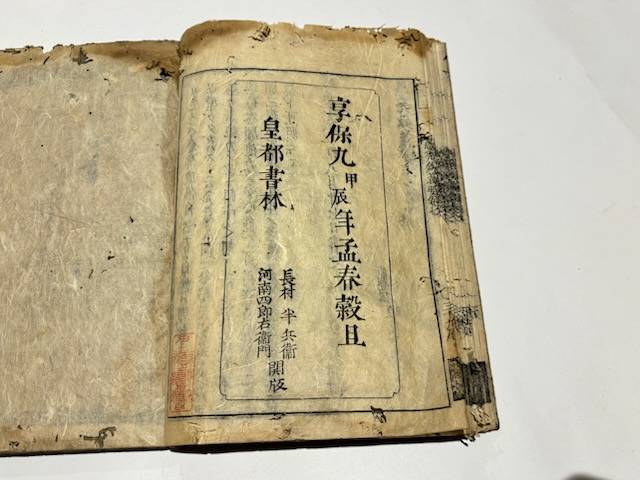 享保九甲辰年孟春穀旦
皇都書林
長村半兵衛
河南四郎右衛門
開版